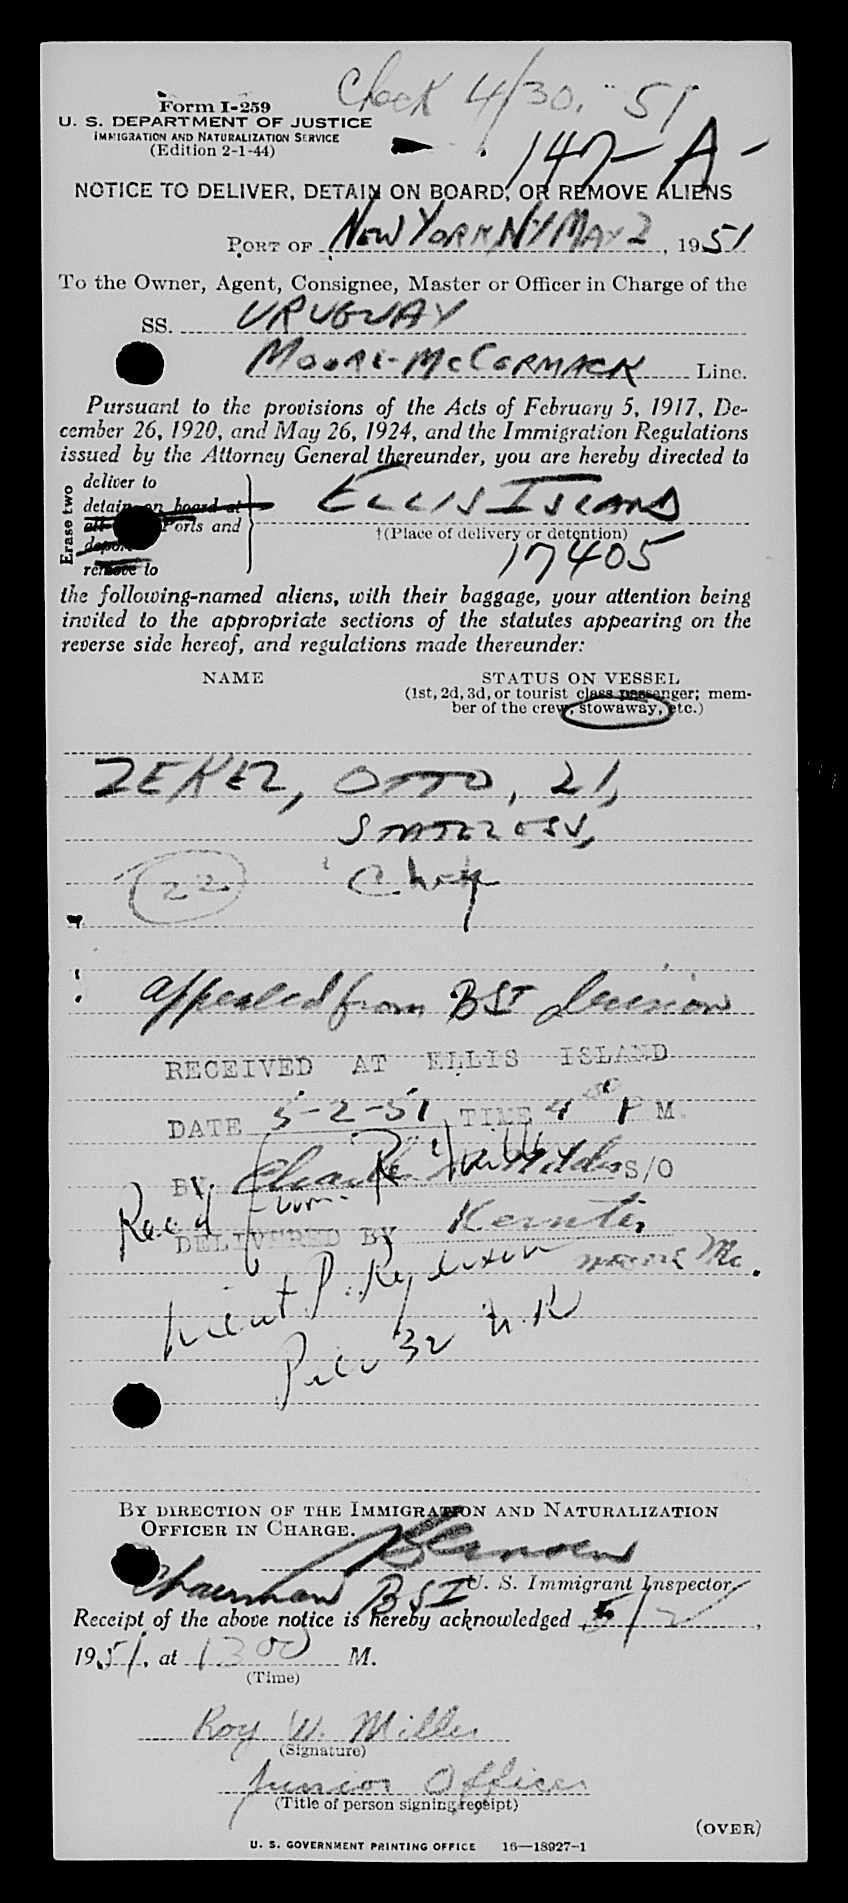 Check 4/30, 51
Form I-259
U. S. DEPARTMENT OF JUSTICE
IMMIGRATION AND NATURALIZATION SERVICE
(Edition 2-1-44)
147-A-
NOTICE TO DELIVER, DETAIN ON BOARD, OR REMOVE ALIENS
PORT OF NEW YORK, NY MAY 2, 1951
To the Owner, Agent, Consignee, Master or Officer in Charge of the
SS. URUGUAY
MOORE-McCORMACK Line.
Pursuant to the provisions of the Acts of February 5, 1917, De-
cember 26, 1920, and May 26, 1924, and the Immigration Regulations
issued by the Attorney General thereunder, you are hereby directed to
Erase two
deliver to
detain on board at
all Ports and
deport
remove to
ELLIS ISLAND
†(Place of delivery or detention)
17405
the following-named aliens, with their baggage, your attention being
invited to the appropriate sections of the statutes appearing on the
reverse side hereof, and regulations made thereunder:
NAME STATUS ON VESSEL
(1st, 2d, 3d, or tourist class passenger; mem-
ber of the crew, stowaway, etc.)
ZEKEZ, OTTO, 21,
STATELESS,
22
appealed from BSI decision
RECEIVED AT ELLIS ISLAND
DATE 5-2-51 TIME 4 P M.
BY S/O
Rec'd from
DELIVERED BY
Moore Mc.
Pier 32 N.R
BY DIRECTION OF THE IMMIGRATION AND NATURALIZATION
OFFICER IN CHARGE.
Chairman BSI U. S. Immigrant Inspector.
Receipt of the above notice is hereby acknowledged 5/2,
1951, at 1300 M.
(Time)
Roy W. Miller
(Signature)
Junior Officer
(Title of person signing receipt)
(OVER)
U. S. GOVERNMENT PRINTING OFFICE 16—18927-1